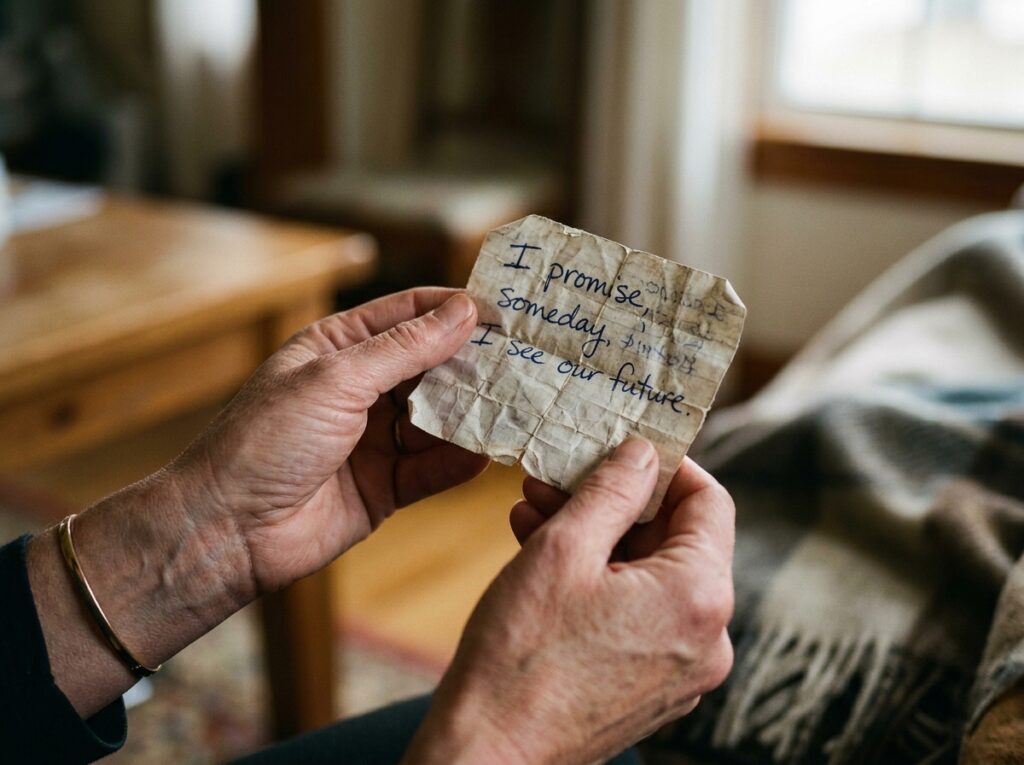 I promise,
someday,
I see our future.